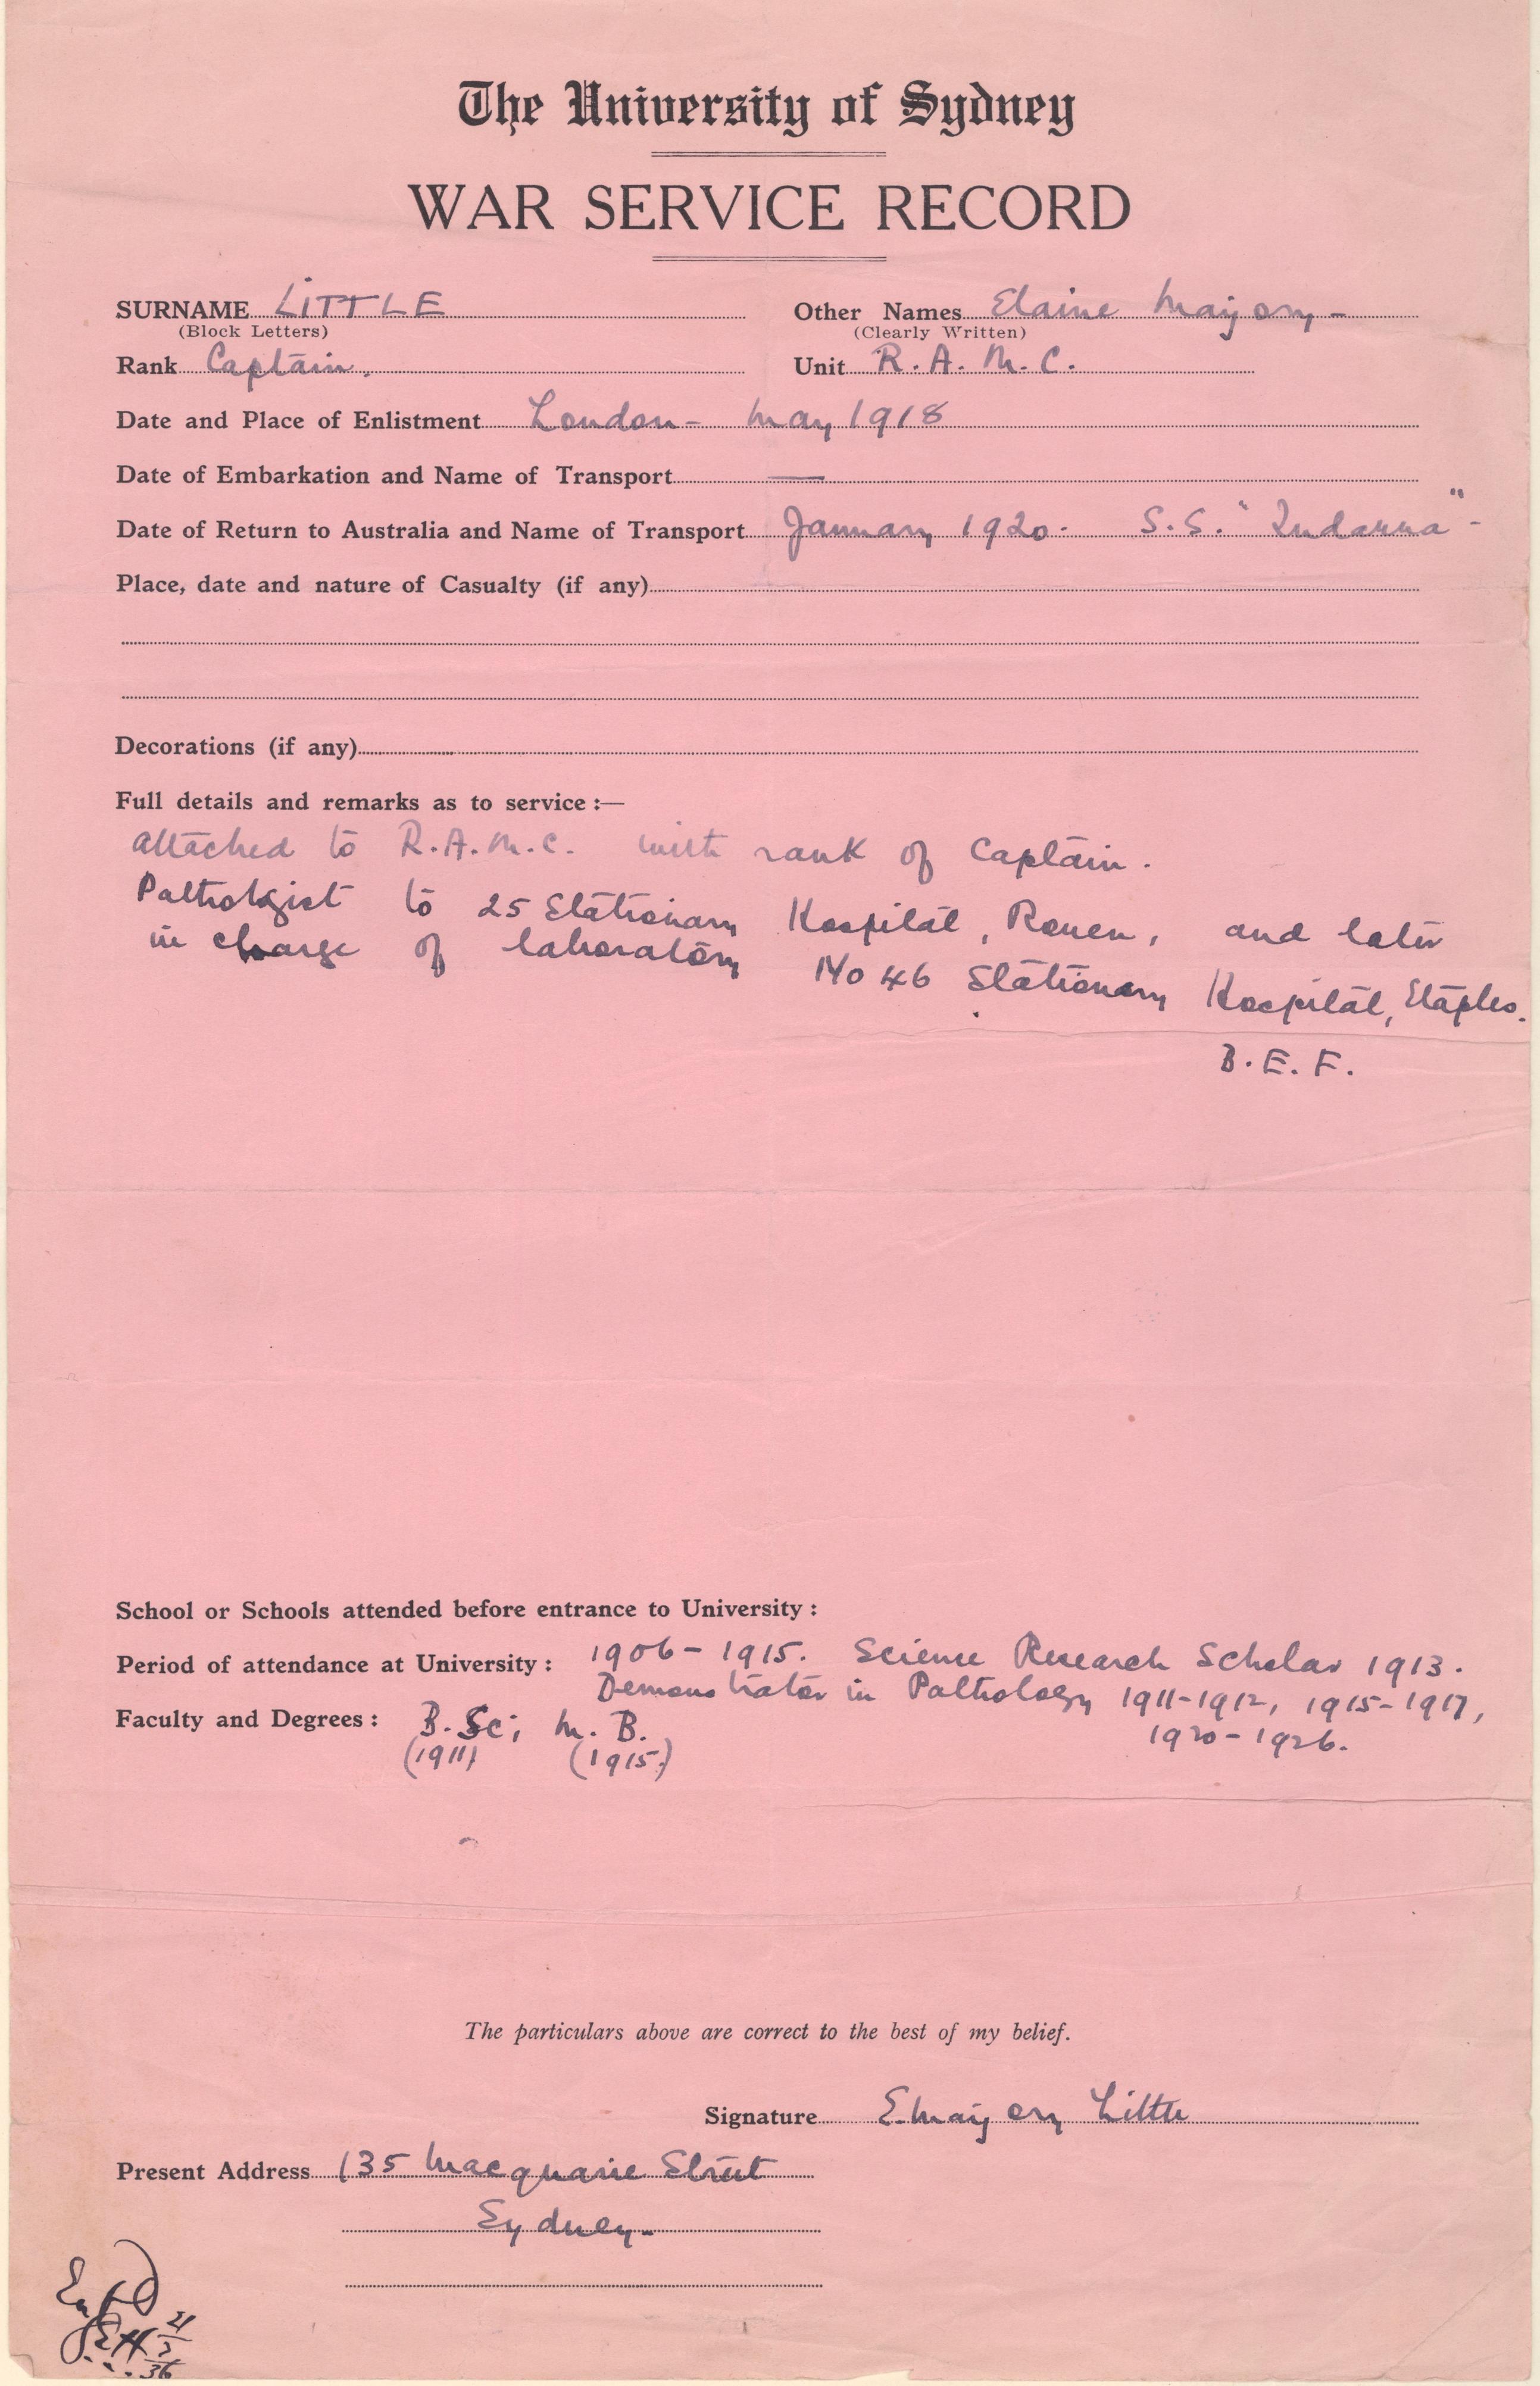 The University of Sydney
WAR SERVICE RECORD
SURNAME LITTLE Other Names Elaine Marjory -
(Block Letters) (Clearly Written)
Rank Captain. Unit R.A.M.C.
Date and Place of Enlistment London - May 1918
Date of Embarkation and Name of Transport —
Date of Return to Australia and Name of Transport January 1920. S.S. "Indarra" -
Place, date and nature of Casualty (if any)
Decorations (if any)
Full details and remarks as to service :—
attached to R.A.M.C. with rank of Captain.
Pathologist to 25 Stationary Hospital, Rouen, and later
in charge of laboratory No 46 Stationary Hospital, Etaples.
B.E.F.
School or Schools attended before entrance to University :
Period of attendance at University : 1906 - 1915. Science Research Scholar 1913.
Demonstrator in Pathology 1911-1912, 1915-1917,
Faculty and Degrees : B.Sc; M.B. 1920-1926.
(1911) (1915)
The particulars above are correct to the best of my belief.
Signature E. Marjory Little
Present Address 135 Macquarie Street
Sydney -
21/3/36